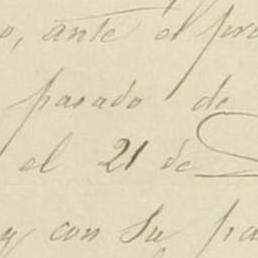 o, ante el pro
pasado de
el 21 de
y con su pa